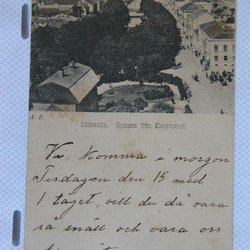 A. E.
Uddevalla. Kampen från Klocktornet
Vi komma i morgon
Tisdagen den 15 med
1 tåget, vill du då vara
så snäll och vara oss